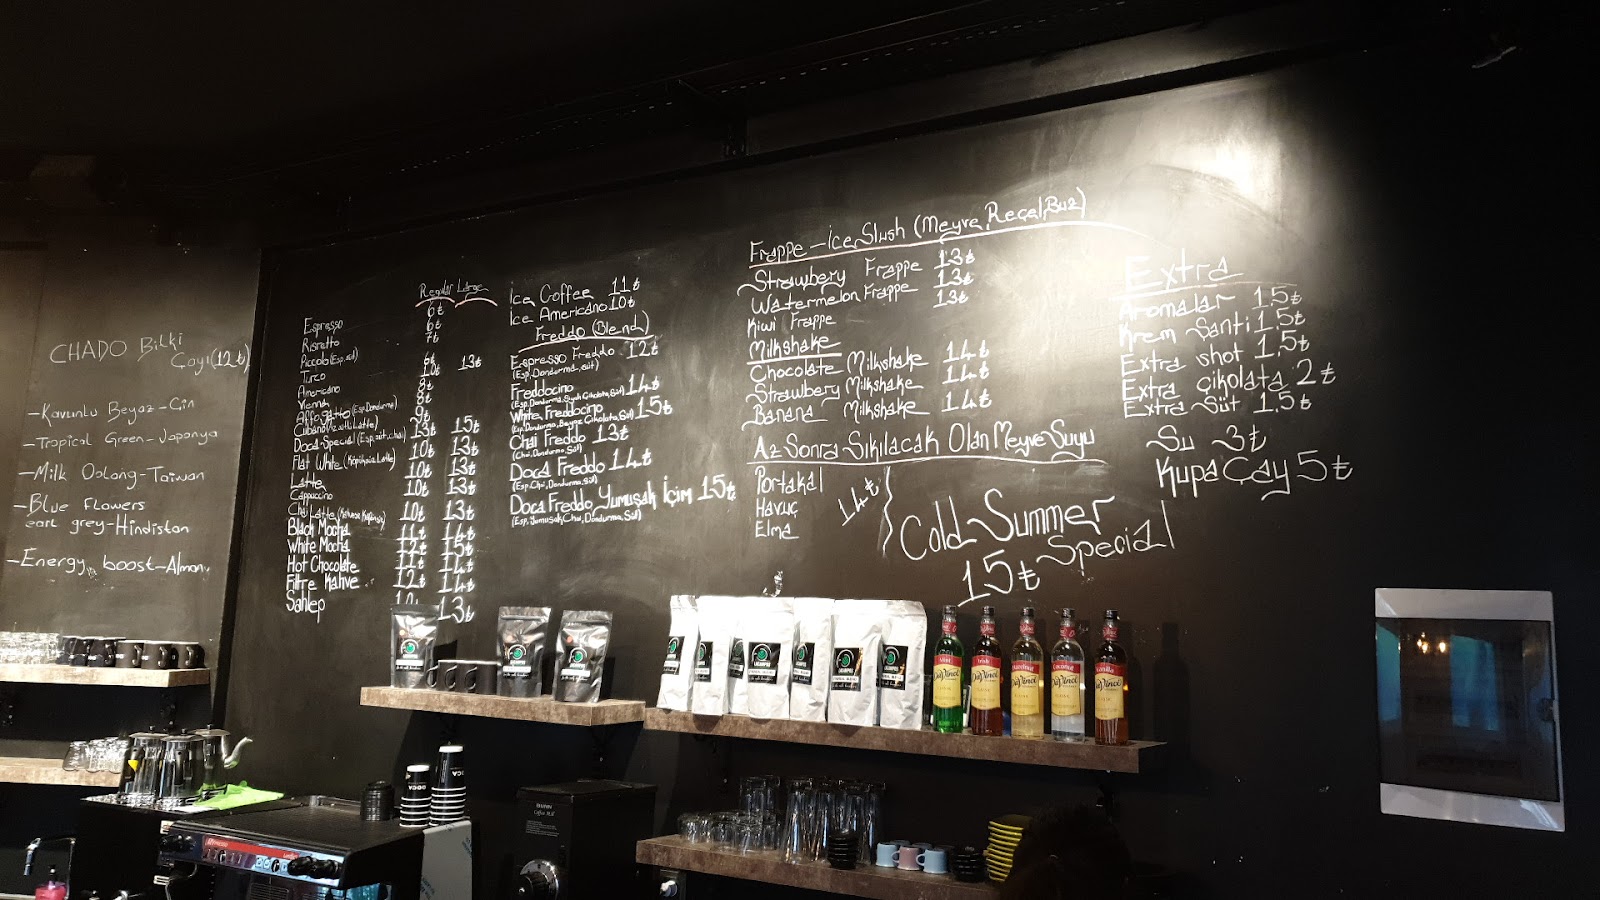 CHADO Bitki
Çayı(12₺)
-Kavunlu Beyaz-Çin
-Tropical Green-Japonya
-Milk Oolong-Taiwan
-Blue Flowers
earl grey-Hindistan
-Energy boost-Alman
Regular Large
Espresso 6₺
Ristretto 6₺
Piccolo (Esp, süt) 7₺
Turco 6₺ 13₺
Americano 10₺
Vienna 8₺
Affogatto (Esp, Dondurma) 8₺
Cubano 9₺
Doca Special (Esp, süt, chai) 13₺ 15₺
Flat White 10₺ 13₺
Latte 10₺ 13₺
Cappuccino 10₺ 13₺
Chai Latte 10₺ 13₺
Black Mocha 11₺ 14₺
White Mocha 12₺ 15₺
Hot Chocolate 11₺ 14₺
Filtre Kahve 12₺ 14₺
Sahlep 13₺
İce Coffee 11₺
İce Americano 10₺
Freddo (Blend)
Espresso Freddo 12₺
(Esp, Dondurma, süt)
Freddocino 14₺
(Esp, Dondurma, Siyah Çikolata, Süt)
White Freddocino 15₺
(Esp, Dondurma, Beyaz Çikolata, Süt)
Chai Freddo 13₺
(Chai, Dondurma, Süt)
Doca Freddo 14₺
(Esp, Chai, Dondurma, Süt)
Doca Freddo Yumuşak İçim 15₺
(Esp, Yumuşak Chai, Dondurma, Süt)
Frappe-İce Slush (Meyve, Reçel, Buz)
Strawbery Frappe 13₺
Watermelon Frappe 13₺
Kiwi Frappe 13₺
Milkshake
Chocolate Milkshake 14₺
Strawbery Milkshake 14₺
Banana Milkshake 14₺
Az Sonra Sıkılacak Olan Meyve Suyu
Portakal
Havuç 14₺
Elma
Cold Summer
Special
15₺
Extra
Aromalar 1.5₺
Krem Şanti 1.5₺
Extra shot 1.5₺
Extra çikolata 2₺
Extra Süt 1.5₺
Su 3₺
Kupa Çay 5₺
DaVinci
DaVinci
DaVinci
DaVinci
DaVinci
DOCA